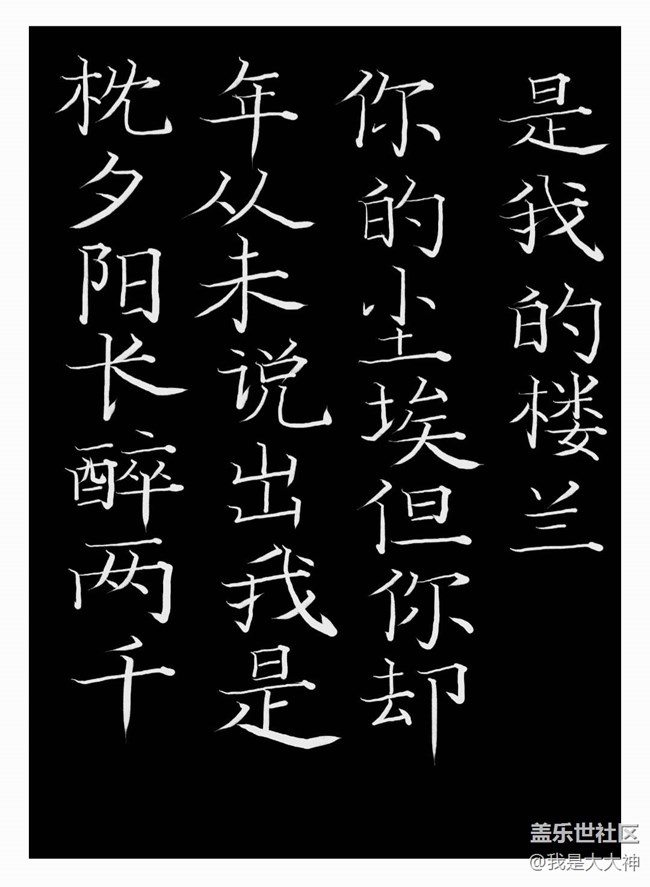 枕夕阳长醉两千
年从未说出我是
你的尘埃但你却
是我的楼兰
盖乐世社区
@我是大大神